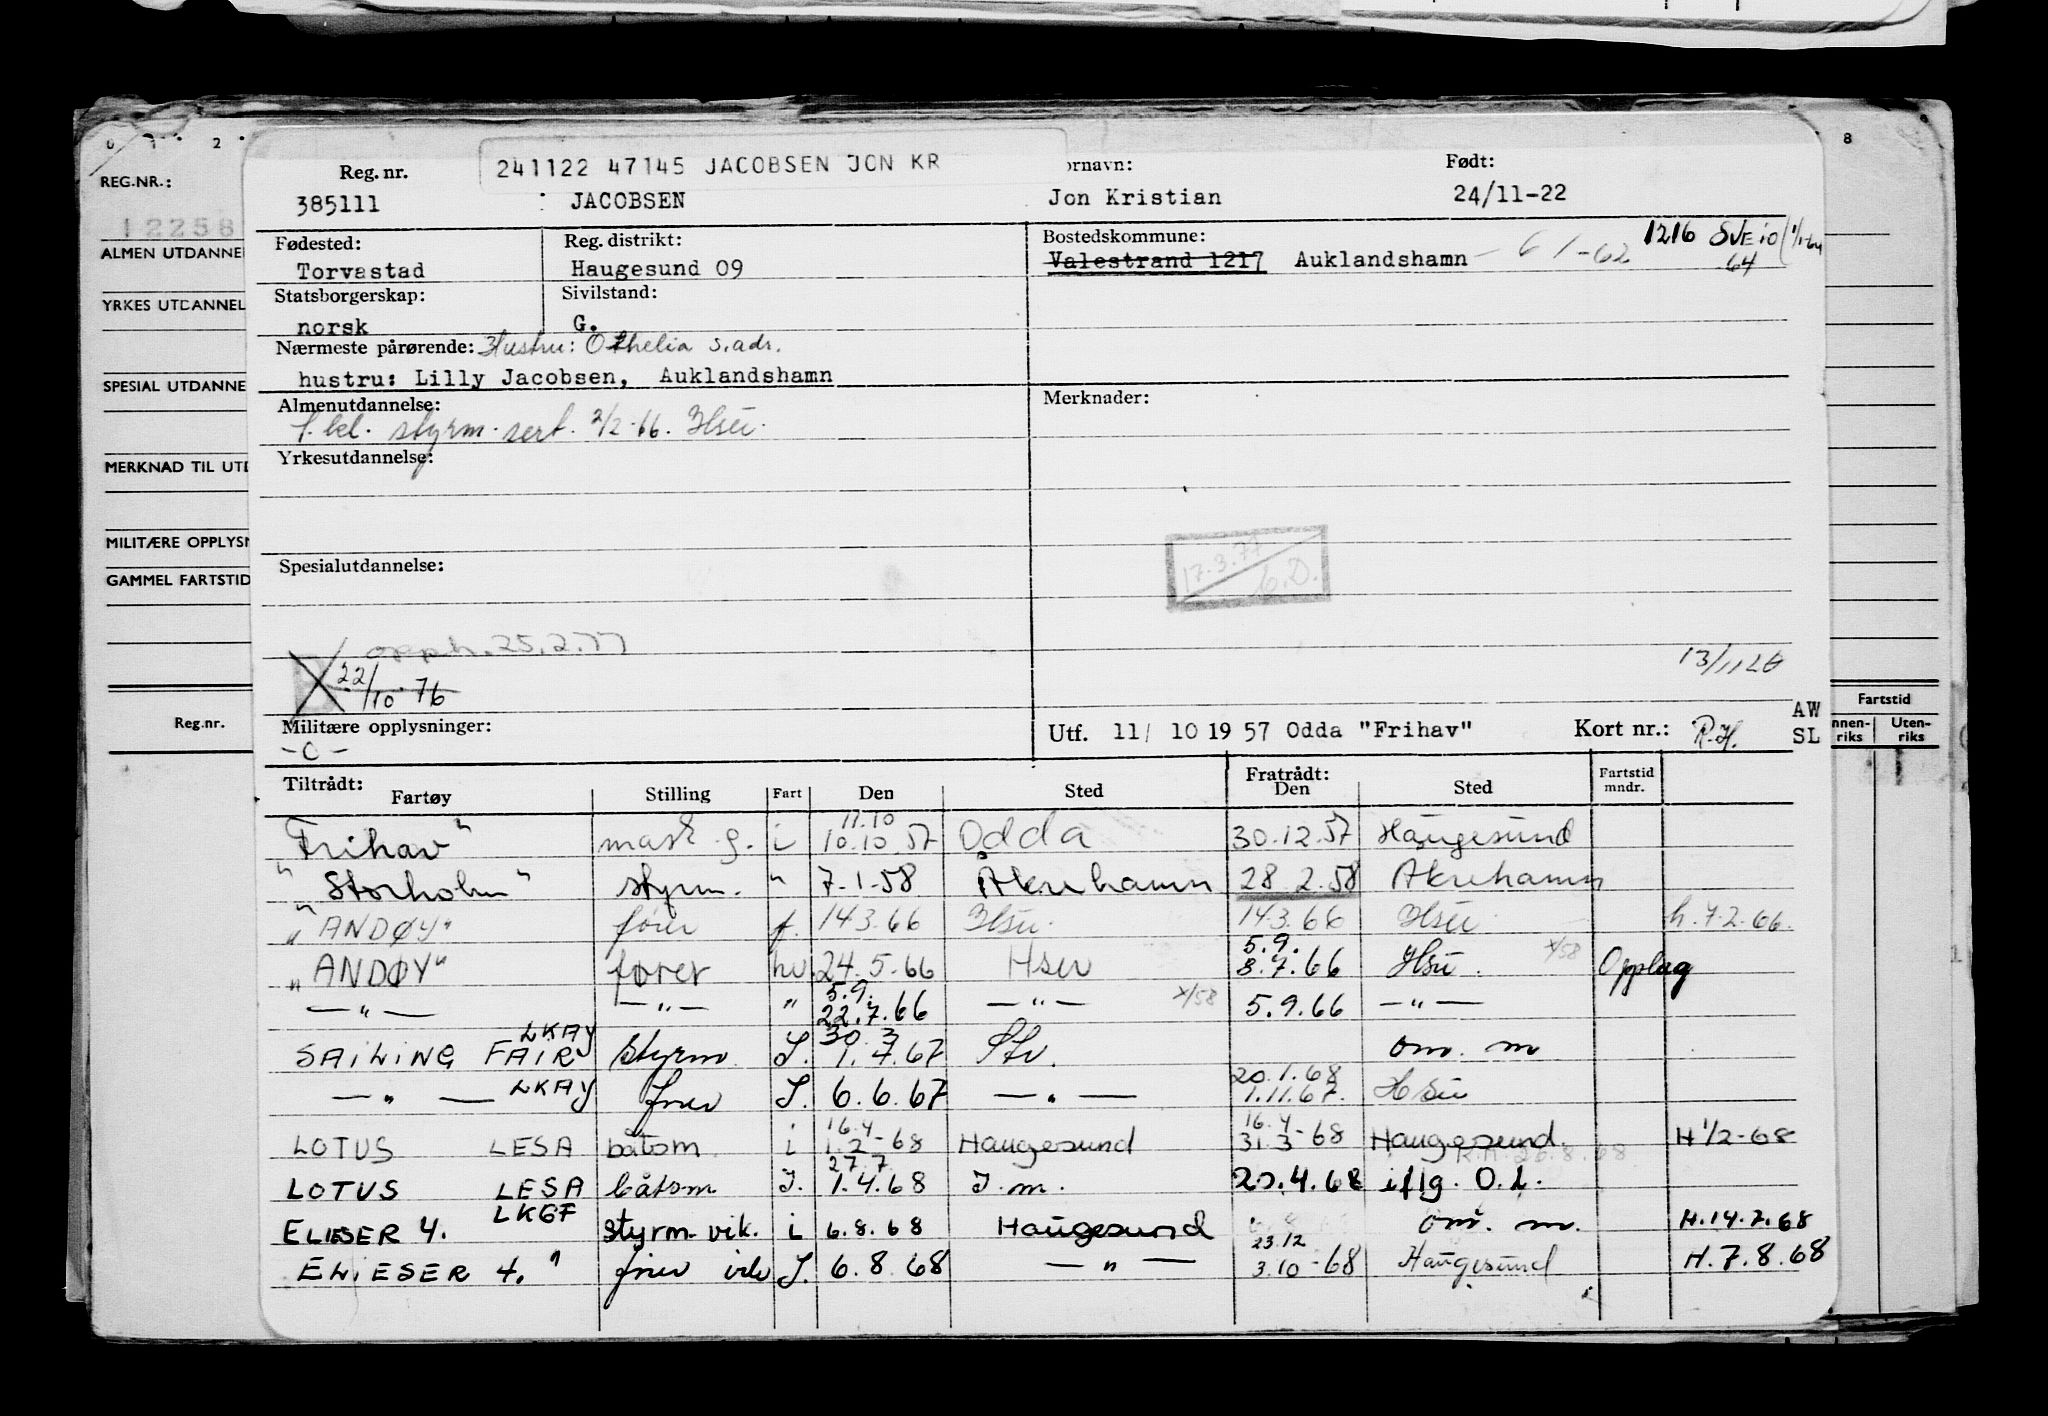 8
REG.NR.:
12258
ALMEN UTDANNE
YRKES UTDANNEL
SPESIAL UTDANNE
MERKNAD TIL UTD
MILITÆRE OPPLYSN
GAMMEL FARTSTID
Reg.nr.
241122 47145 JACOBSEN JON KR
Reg. nr. ornavn: Født:
385111 : JACOBSEN Jon Kristian 24/11-22
Fødested: Reg. distrikt: Bostedskommune: 1216 SVEIO (1/1-64
Torvastad Haugesund 09 Valestrand 1217 Auklandshamn - 6 1-62 -64
Statsborgerskap: Sivilstand:
norsk G.
Nærmeste pårørende: Hustru: Othelia s.adr.
hustru: Lilly Jacobsen, Auklandshamn
Almenutdannelse: Merknader:
1. kl. styrm. sert. 2/2-66. Hsu.
Yrkesutdannelse:
17.3.77
Spesialutdannelse:
opph. 25.2.77
22/10.76
Militære opplysninger: Utf. 11/ 10 19 57 Odda "Frihav" Kort nr.: R.H. AW SL
-0-
Fartstid
nnen-riks Uten-riks
Tiltrådt: Fratrådt:
Fartøy Stilling Fart Den Sted Den Sted Fartstid mndr.
11.10
"Frihav" mask g. i 10.10 57 Odda 30.12.57 Haugesund
"Storholm" styrm. " 7-1-58 Åkrehamn 28 2.58 Åkrehamn
"ANDØY" fører f. 14.3.66 Hsu. 14.3.66 Hsu. h.7.2.66.
5.9.
"ANDØY" fører hv 24.5.66 Hsu 8.7.66 Hsu. x/58 Opplag
5.9.
— " — — " — " 22.7.66 — " — x/58 5.9.66 — " —
LKAY 30 3
SAILING FAIR styrm. S. 1.4.67 Stv. om. m
20.1.68
— " — LKAY fører S. 6.6.67 — " — 1.11.67. Hsu
16.4 16.4
LOTUS LESA båtsm. i 1.2-68 Haugesund 31.3-68 Haugesund. H 1/2-68
27.7
LOTUS LESA båtsm I. 1.4.68 I. m. 20.4.68 iflg. O.L.
LKGF
ELIESER 4. styrm. vik. i 6.8.68 Haugesund om. m. H.14.7.68
23.12
ELIESER 4. " fører vik S. 6.8.68 — " — 3.10-68 Haugesund H.7.8.68